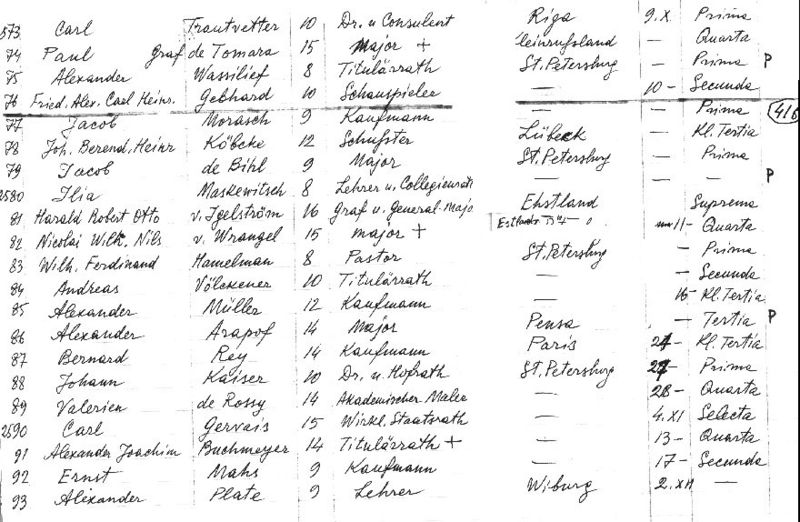 573 Carl Trautvetter 10 Dr. u Consulent Riga 9. X. Prima
74 Paul Graf de Tomara 15 Major + Kleinrussland — Quarta
75 Alexander Wassilief 8 Titulärrath St. Petersburg — Prima P
76 Fried. Alex. Carl Heinr. Gebhard 10 Schauspieler — 10 – Secunda
77 Jacob Morasch 9 Kaufmann — — Prima 416
78 Joh. Berend. Heinr Köbcke 12 Schuster Lübeck — Kl. Tertia
79 Jacob de Bihl 9 Major St. Petersburg — Prima
2580 Ilia Maskewitsch 8 Lehrer u. Collegienrath — — — P
81 Harald Robert Otto v. Igelström 16 Graf u. General-Major Ehstland Suprema
82 Nicolai Wilh. Nils v. Wrangel 15 Major + 11 – Quarta
83 Wilh. Ferdinand Hamelman 8 Pastor St. Petersburg — Prima
84 Andreas Völckener 10 Titulärrath — — Secunda
85 Alexander Müller 12 Kaufmann — 16 – Kl. Tertia
86 Alexander Arapof 14 Major Pensa — Tertia P
87 Bernard Rey 14 Kaufmann Paris 27 – Kl. Tertia
88 Johann Kaiser 10 Dr. u. Hofrath St. Petersburg 27 – Prima
89 Valerien de Rossy 14 Akademischer Maler — 28 – Quarta
2590 Carl Gervais 15 Wirkl. Staatsrath — 4. XI Selecta
91 Alexander Joachim Buchmeyer 14 Titulärrath + — 13 – Quarta
92 Ernst Mahs 9 Kaufmann — 17 – Secunda
93 Alexander Plate 9 Lehrer Wiburg 2. XII —